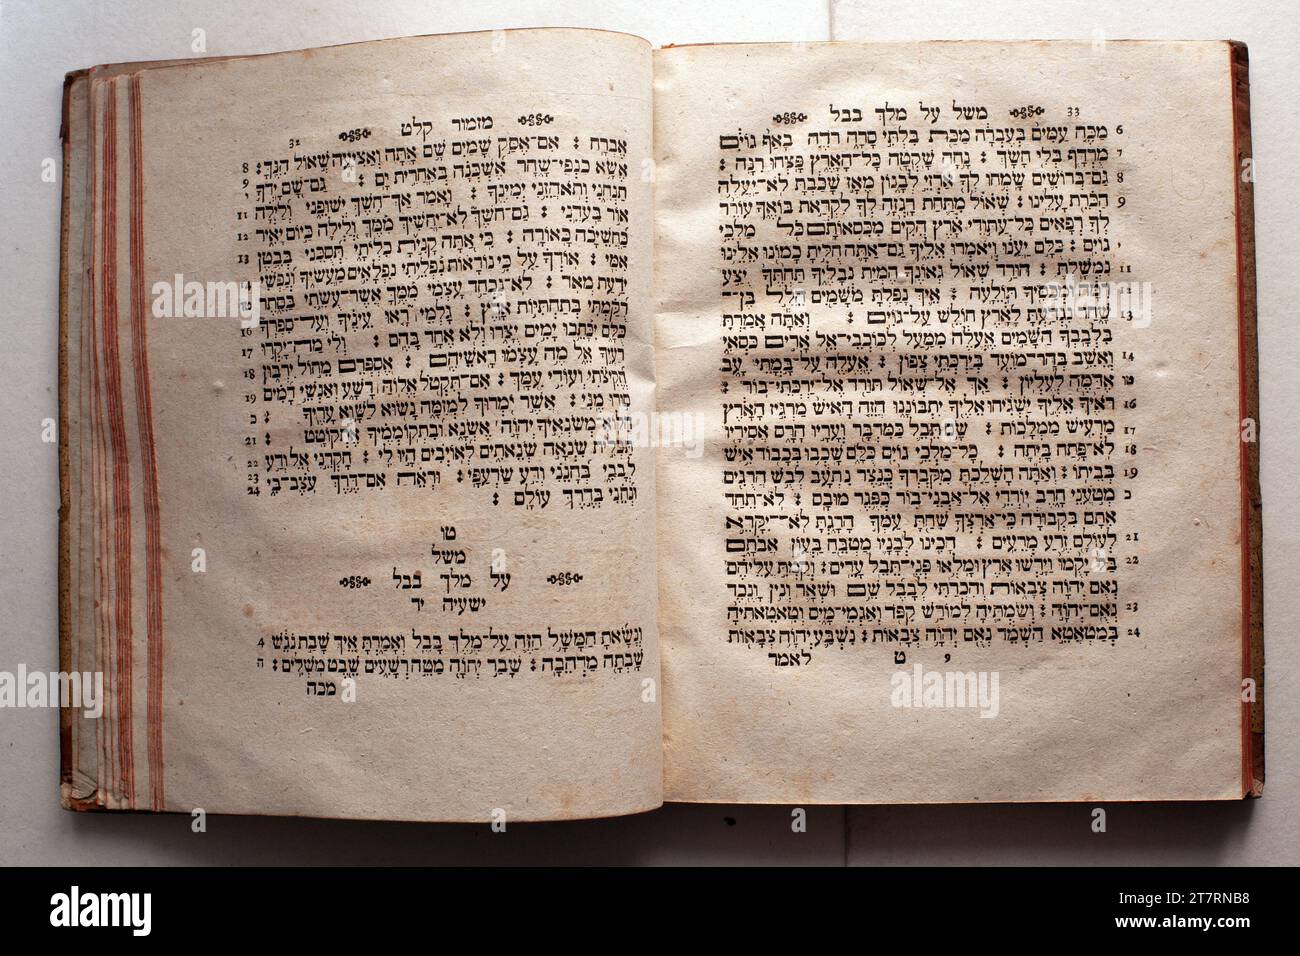 מזמור קלט 32
אברח : אם־אסק שמים שם אתה ואציעה שאול הנך : 8
אשא כנפי־שחר אשכנה באחרית ים : גם־שם ידך 9 י
תנחני ותאחזני ימינך : ואמר אך־חשך ישופני ולילה 11
אור בעדני : גם־חשך לא־יחשיך ממך ולילה כיום יאיר 12
כחשיכה כאורה : כי אתה קנית כליתי תסכני בבטן 13
אמי : אודך על כי נוראות נפליתי נפלאים מעשיך ונפשי 14
ידעת מאד : לא־נכחד עצמי ממך אשר־עשתי בסתר טו
רקמתי בתחתיות ארץ : גלמי ראו עיניך ועל־ספרך 16
כלם יכתבו ימים יצרו ולא אחד בהם : ולי מה־יקרו 17
רעיך אל מה עצמו ראשיהם : אספרם מחול ירבון 18
הקיצתי ועודי עמך : אם־תקטל אלוה רשע ואנשי דמים 19
סורו מני : אשר ימרוך למזמה נשוא לשוא עריך : כ
הלוא־משנאיך יהוה אשנא ובתקוממיך אתקוטט : 21
תכלית שנאה שנאתים לאויבים היו לי : חקרני אל ודע 22
לבבי בחנני ודע שרעפי : וראה אם־דרך עצב־בי 23 24
ונחני בדרך עולם :
טו
משל
על מלך בבל
ישעיה יד
ונשאת המשל הזה על־מלך בבל ואמרת איך שבת נגש 4
שבתה מדהבה : שבר יהוה מטה רשעים שבט משלים : ה
מכה
33 משל על מלך בבל
6 מכה עמים בעברה מכת בלתי סרה רדה באף גוים
7 מרדף בלי חשך : נחה שקטה כל־הארץ פצחו רנה :
8 גם־ברושים שמחו לך ארזי לבנון מאז שכבת לא־יעלה
9 הכרת עלינו : שאול מתחת רגזה לך לקראת בואך עורר
לך רפאים כל־עתודי ארץ הקים מכסאותם כל מלכי
י גוים : כלם יענו ויאמרו אליך גם־אתה חלית כמונו אלינו
11 נמשלת : הורד שאול גאונך המית נבליך תחתך יצע
12 רמה ומכסיך תולעה : איך נפלת משמים הילל בן־
13 שחר נגדעת לארץ חולש על־גוים : ואתה אמרת
בלבבך השמים אעלה ממעל לכוכבי־אל ארים כסאי
14 ואשב בהר־מועד בירכתי צפון : אעלה על־במתי עב
טו אדמה לעליון : אך אל־שאול תורד אל־ירכתי־בור :
16 ראיך אליך ישגיחו אליך יתבוננו הזה האיש מרגיז הארץ
17 מרעיש ממלכות : שם תבל כמדבר ועריו הרס אסיריו
18 לא־פתח ביתה : כל־מלכי גוים כלם שכבו בכבוד איש
19 בביתו : ואתה השלכת מקברך כנצר נתעב לבש הרגים
כ מטעני חרב יורדי אל־אבני־בור כפגר מובס : לא־תחד
אתם בקבורה כי־ארצך שחת עמך הרגת לא־יקרא
21 לעולם זרע מרעים : הכינו לבניו מטבח בעון אבותם
22 בל יקמו וירשו ארץ ומלאו פני־תבל ערים : וקמתי עליהם
נאם יהוה צבאות והכרתי לבבל שם ושאר ונין ונכד
23 נאם־יהוה : ושמתיה למורש קפד ואגמי־מים וטאטאתיה
24 במטאטא השמד נאם יהוה צבאות : נשבע יהוה צבאות
9 ט לאמר
alamy
Image ID: 2T7RNB8
www.alamy.com